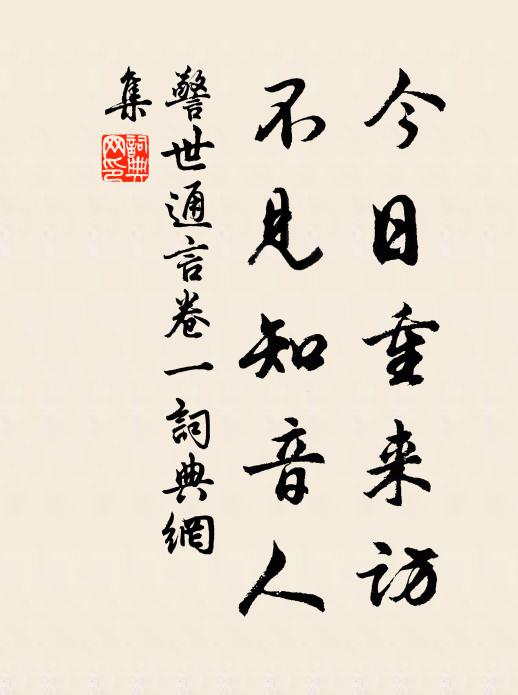 今日重来訪
不見知音人
警世通言卷一詞典網
集
詞典网印